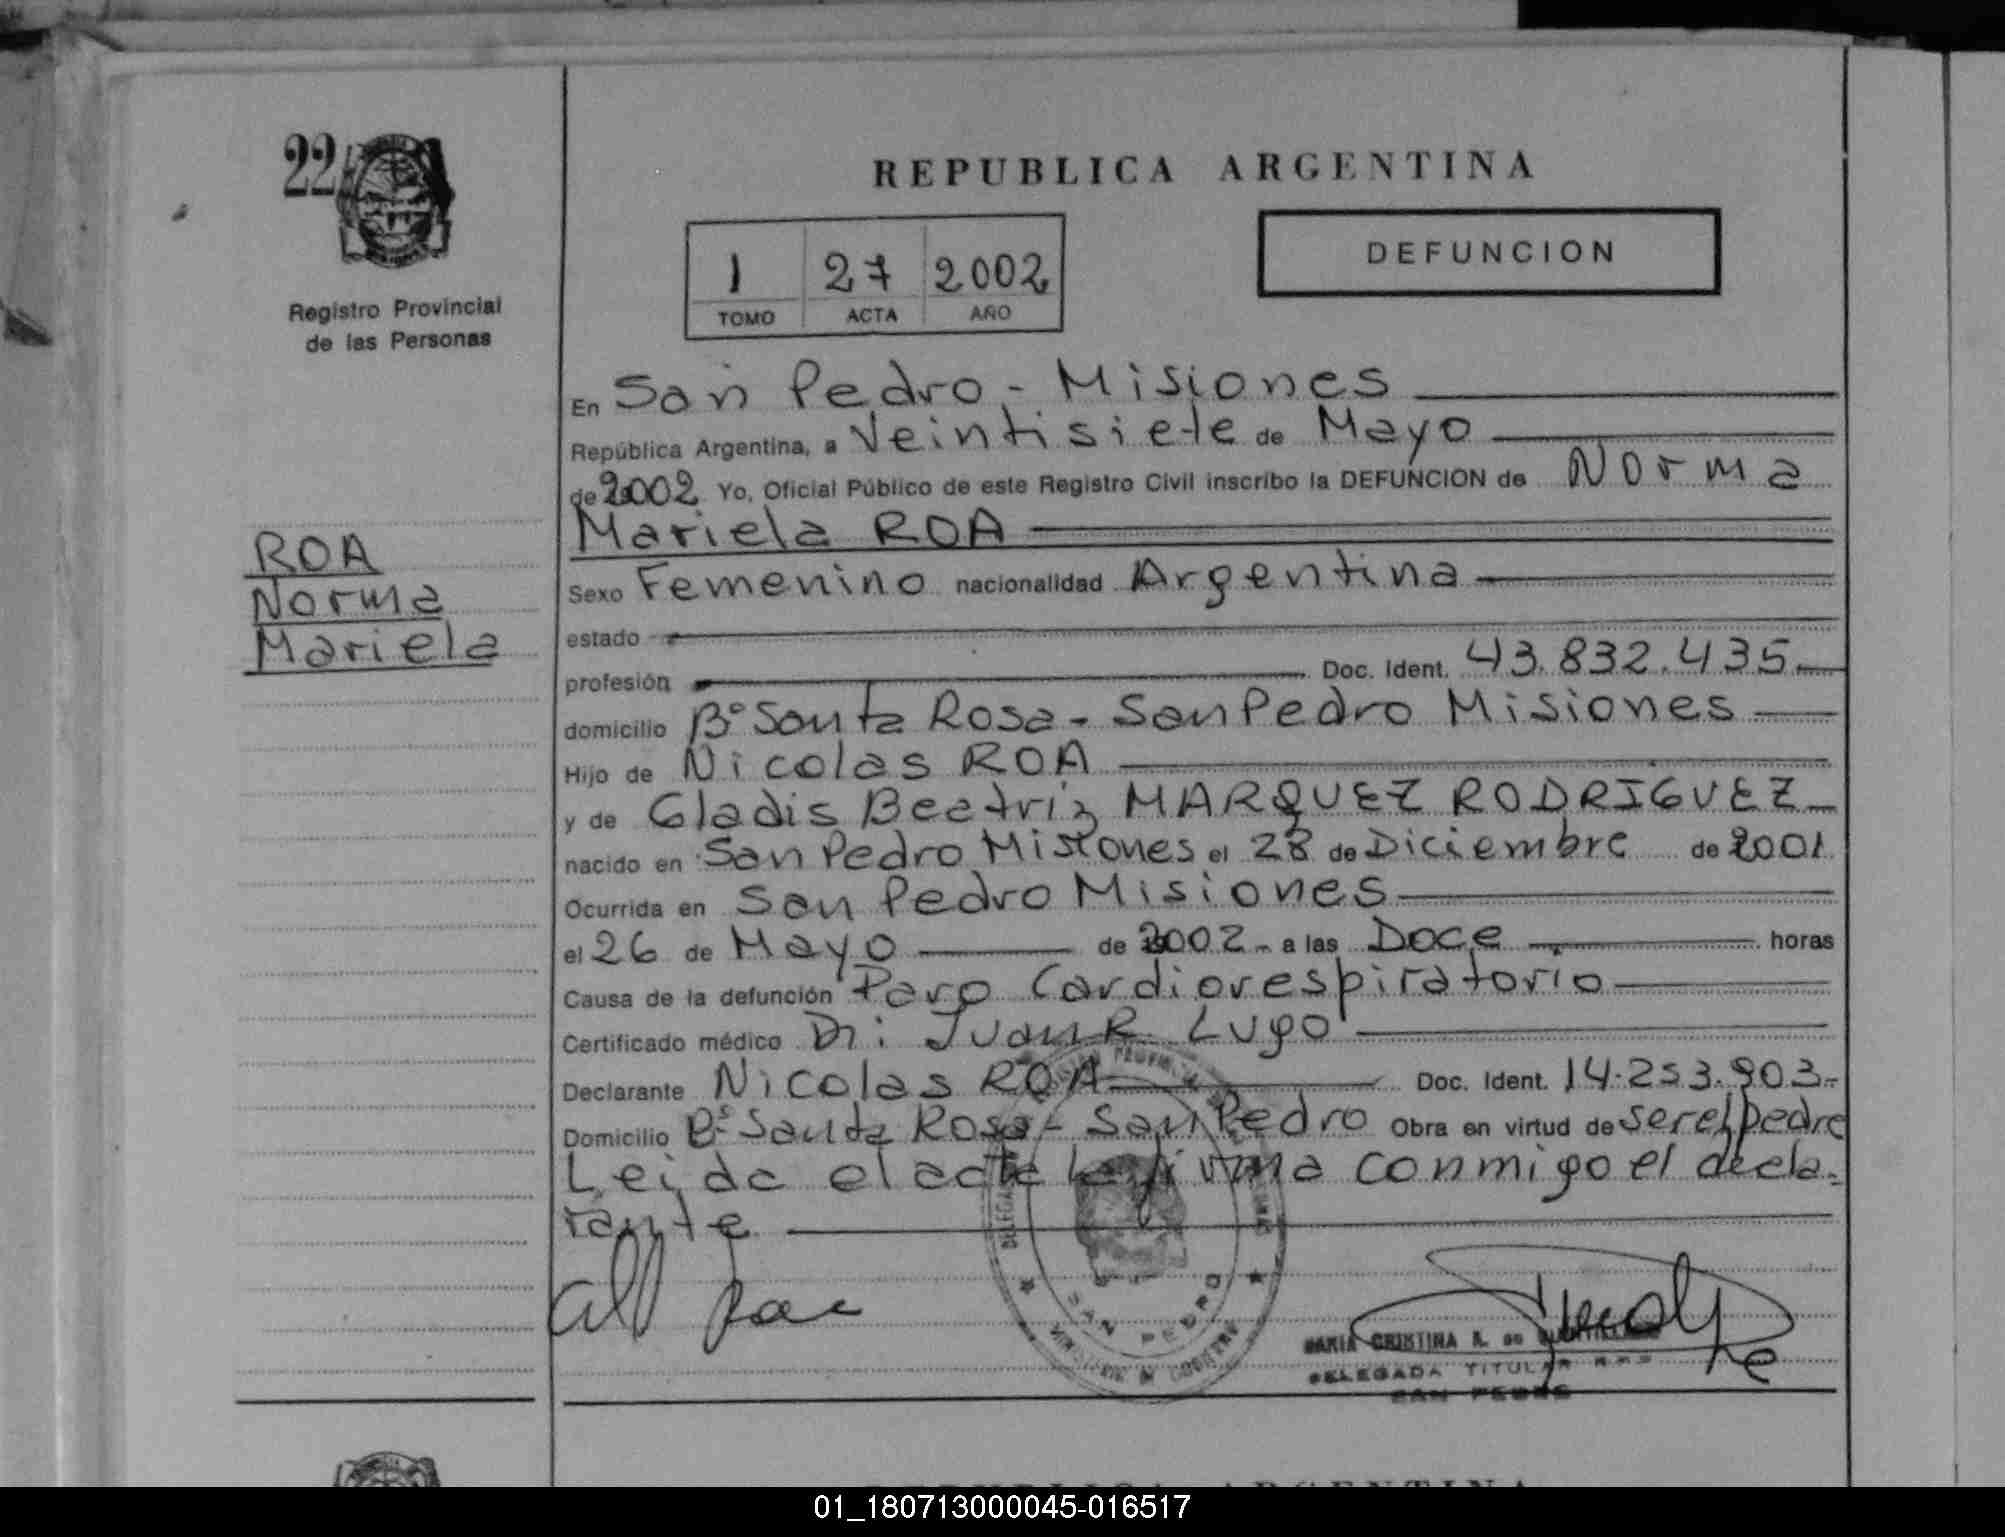 22
Registro Provincial
de las Personas
ROA
Norma
Mariela
REPUBLICA ARGENTINA
1 27 2002
TOMO ACTA AÑO
DEFUNCION
En San Pedro - Misiones
República Argentina, a Veintisiete de Mayo
de 2002 Yo, Oficial Público de este Registro Civil inscribo la DEFUNCION de Norma
Mariela ROA
Sexo Femenino nacionalidad Argentina
estado
profesión Doc. Ident. 43.832.435
domicilio Bº Santa Rosa - San Pedro Misiones
Hijo de Nicolas ROA
y de Gladis Beatriz MARQUEZ RODRIGUEZ
nacido en San Pedro Misiones el 28 de Diciembre de 2001
Ocurrida en San Pedro Misiones
el 26 de Mayo de 2002 - a las Doce horas
Causa de la defunción Paro Cardiorespiratorio
Certificado médico Dr: Juan R. Lugo
Declarante Nicolas ROA Doc. Ident. 14.253.903.-
Domicilio Bº Santa Rosa - San Pedro Obra en virtud de ser el padre
Leida el acta la firma conmigo el decla-
rante
SAN PEDRO
MARIA CRISTINA R. de
DELEGADA TITULAR R.P.P.
SAN PEDRO
REPUBLICA ARGENTINA
01_180713000045-016517